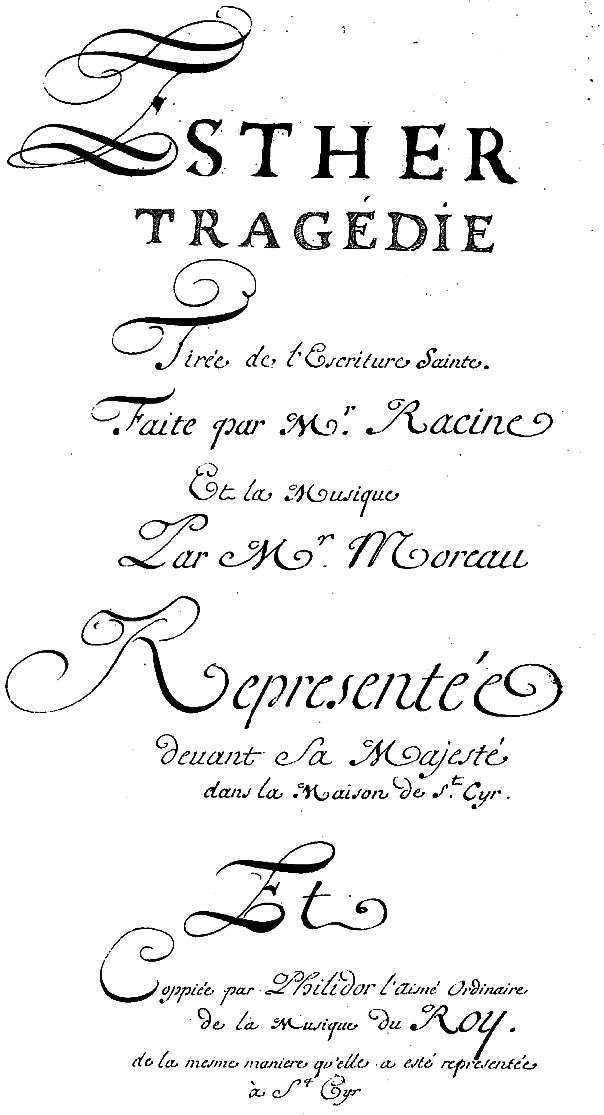 ESTHER
TRAGÉDIE
Tirée de l'Escriture Sainte.
Faite par Mr. Racine
Et la Musique
Par Mr. Moreau
Representée
devant Sa Majesté
dans la Maison de St. Cyr.
Et
Coppiée par Philidor l'aisné Ordinaire
de la Musique du Roy.
de la mesme maniere qu'elle a esté representée
à St Cyr